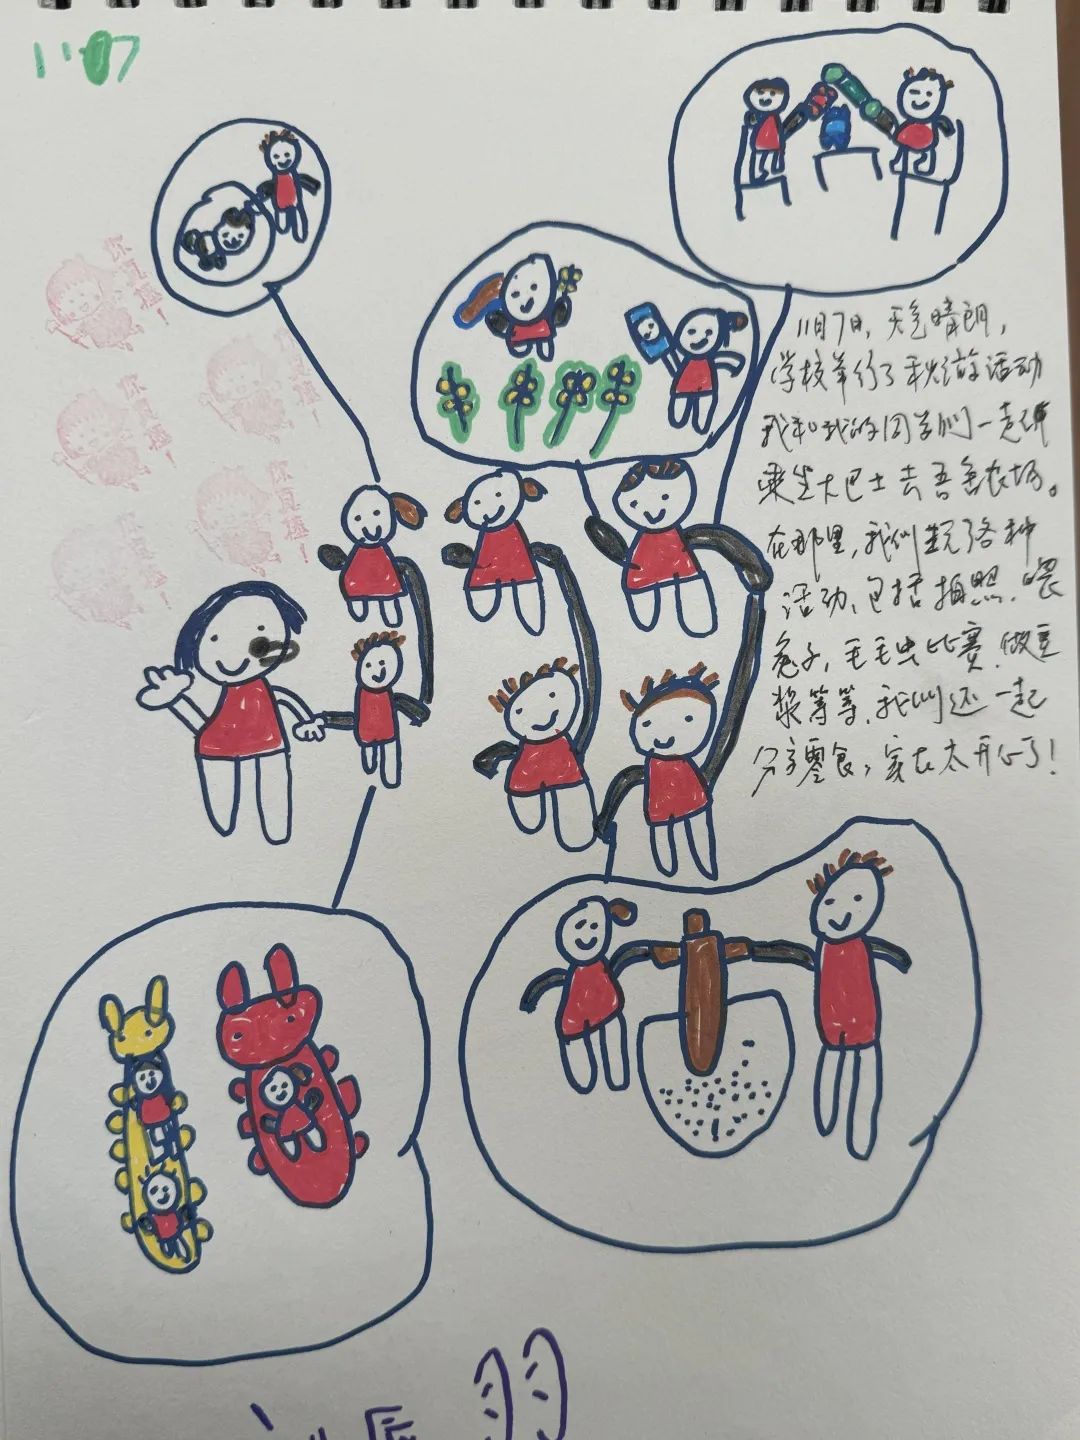 11·07
你真棒！
你真棒！
你真棒！
你真棒！
你真棒！
11月7日，天气晴朗，
学校举行了秋游活动
我和我的同学们一起
乘坐大巴士去吾舍农场。
在那里，我们玩了各种
活动、包括拍照、喂
兔子，毛毛虫比赛、做豆
浆等等，我们还一起
分享零食，实在太开心了！
羽